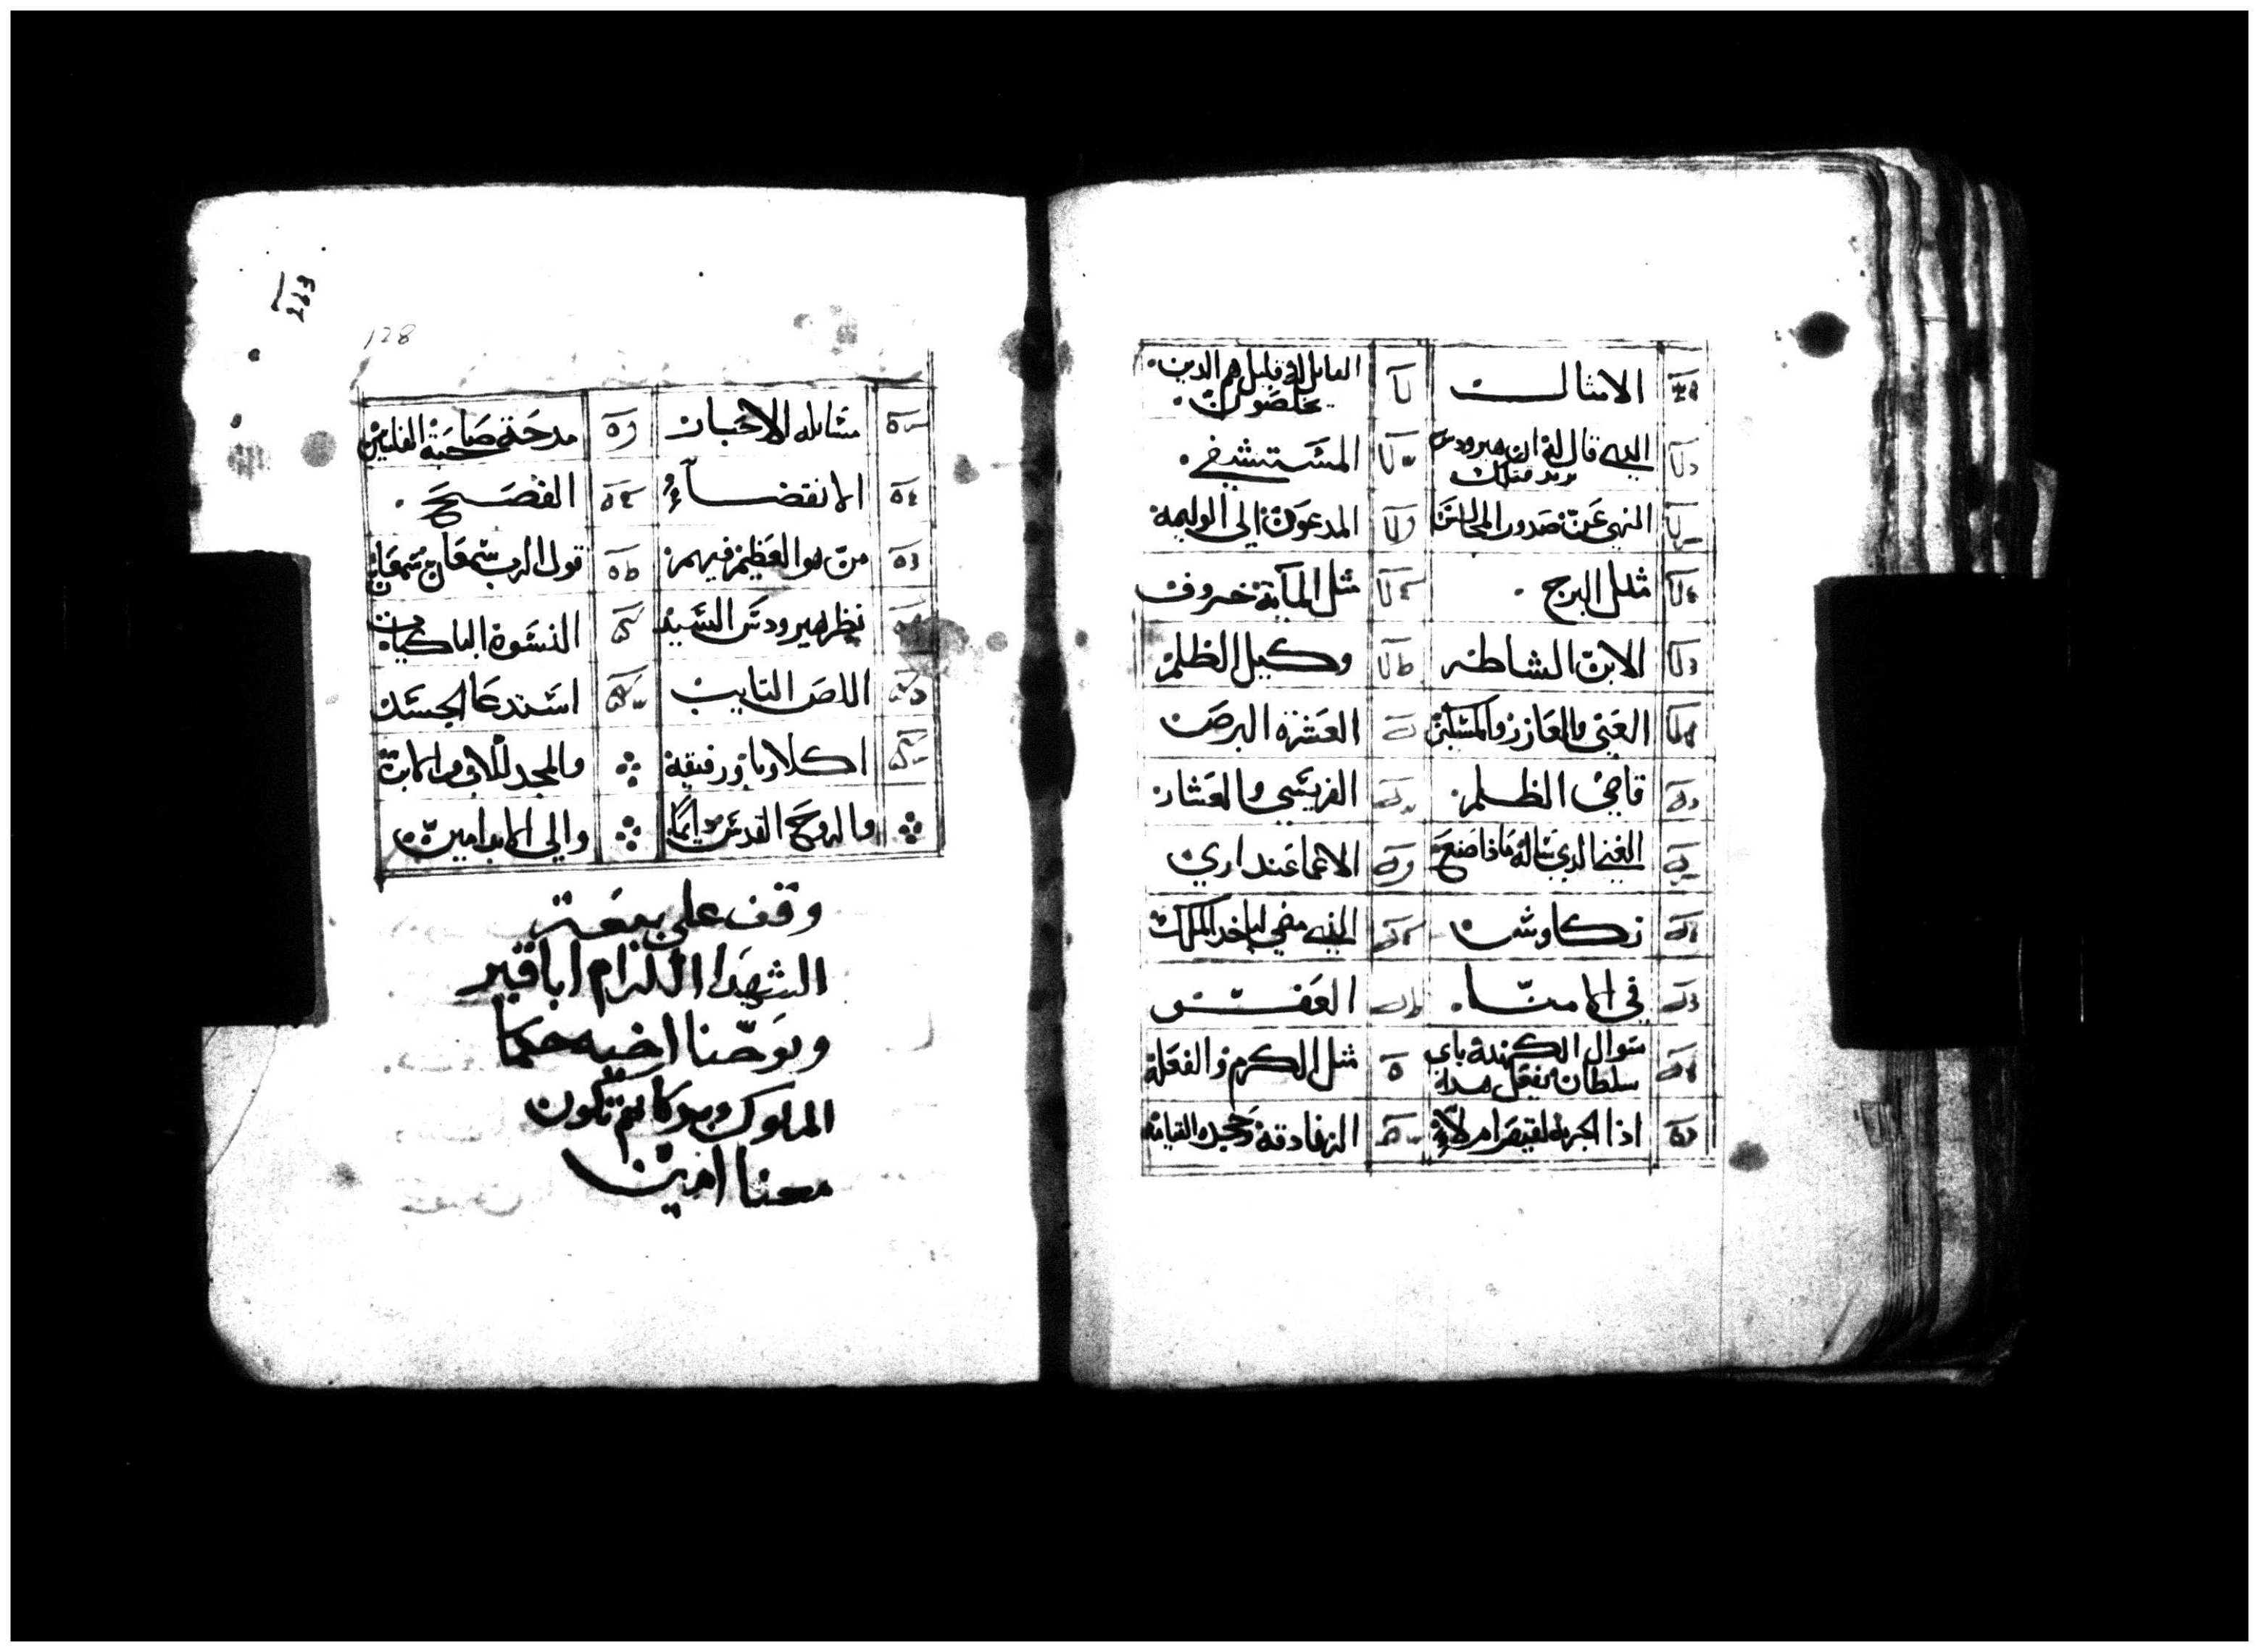 الامثالت
القايل له قليل هم الدين
يخلصون
الدي قال له ان هيرودس
يريد قتلك
المستشفي
النهي عن صدور المجالس
المدعون الي الوليمة
مثل البرج
مثل الماية خروف
الابن الشاطر
وكيل الظلم
الغني والعازر والمسكين
العشرة البرص
قاضي الظلم
الفريسي والعشار
الغني الدي ساله ماذا اصنع
الاعما عند اريحا
زكاوس
الذي مضي لياخد الملك
في الامنا
العفو
سوال الكهنة باي
سلطان تفعل هدا
مثل الكرم والفعلة
اذا الجزية لقيصر ام لا
الزنادقة وجحد القيامة
128
مسايله الاحبار
مدحة صاحبة الفلسين
الانقضآء
الفصح
من هو العظيم فيهم
قول الرب سمعان سمعان
نظر هيرودس السيد
النسوة الباكيات
اللص التايب
استدعا الجسد
اكلاوبا ورفيقه
والمجد للاب والابن
والروح القدس دايما
والي الابد امين
وقف علي بيعة
الشهدا الكرام اباقير
ويوحنا اخيه حكما
الملوك وبركاتهم تكون
معنا امين